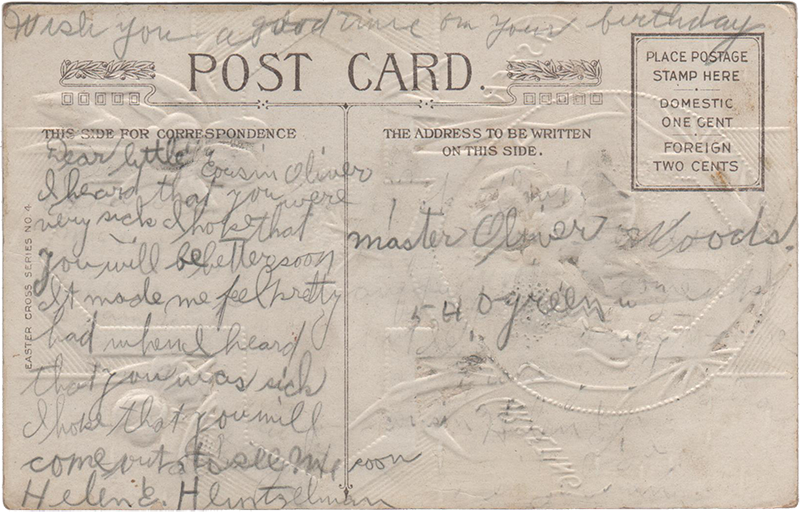 Wish you a good time on your birthday
POST CARD.
THIS SIDE FOR CORRESPONDENCE
THE ADDRESS TO BE WRITTEN
ON THIS SIDE.
PLACE POSTAGE
STAMP HERE
DOMESTIC
ONE CENT
FOREIGN
TWO CENTS
EASTER CROSS SERIES NO. 4.
Dear little Cousin Oliver
I heard that you were
very sick I hope that
you will be better soon
It made me feel pretty
bad when I heard
that you was sick
I hope that you will
come out to see me soon
Helen E. Heintzelman
Master Oliver Woods.